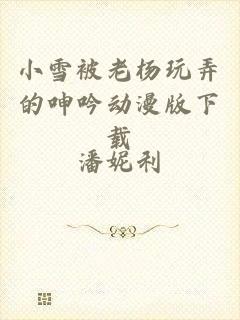 小雪被老杨玩弄
的呻吟动漫版下
载
潘妮利